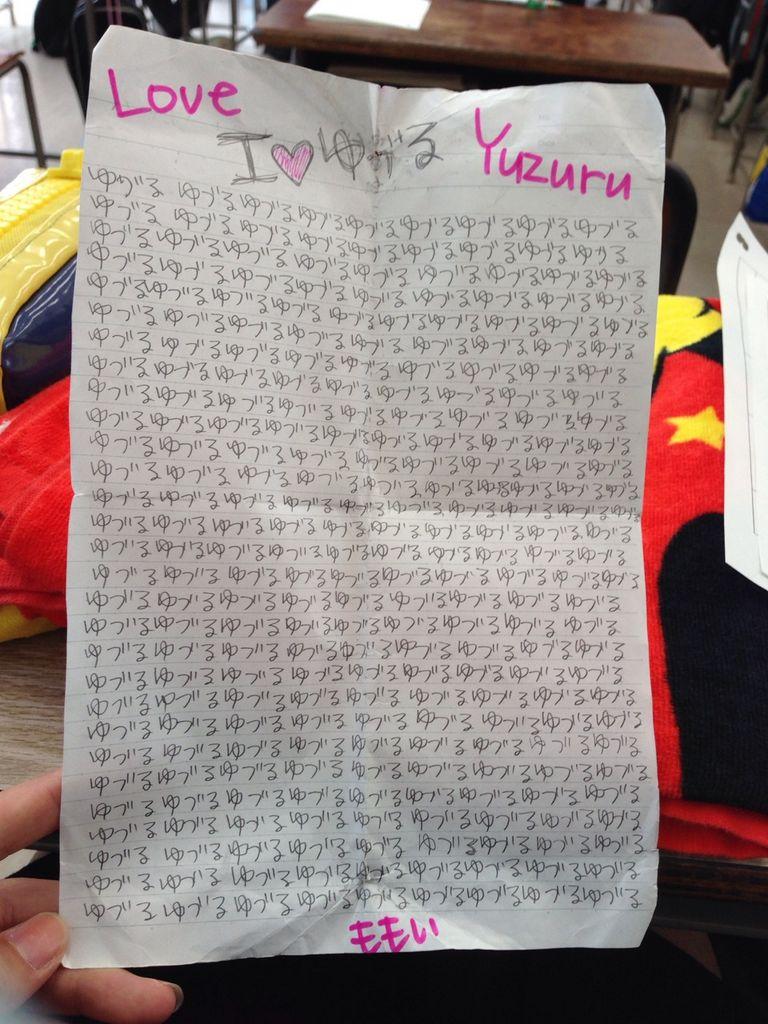 Love
Yuzuru
I♡ゆづる
ゆづる ゆづるゆづるゆづるゆづるゆづるゆづるゆづるゆづる
ゆづる ゆづるゆづるゆづるゆづるゆづるゆづるゆづるゆづる
ゆづるゆづるゆづるゆづるゆづるゆづるゆづるゆづるゆづる
ゆづるゆづるゆづるゆづるゆづる ゆづるゆづるゆづるゆづる
ゆづるゆづるゆづるゆづるゆづるゆづるゆづるゆづるゆづる
ゆづる ゆづるゆづるゆづるゆづるゆづるゆづるゆづるゆづる
ゆづる ゆづるゆづるゆづるゆづるゆづるゆづるゆづるゆづる
ゆづるゆづるゆづるゆづるゆづるゆづるゆづるゆづるゆづる
ゆづるゆづるゆづるゆづるゆづるゆづるゆづるゆづる
ゆづるゆづるゆづるゆづるゆづるゆづるゆづるゆづるゆづる
ゆづるゆづる ゆづるゆづるゆづるゆづるゆづるゆづるゆづる
ゆづる ゆづる ゆづるゆづるゆづるゆづるゆづるゆづるゆづる
ゆづるゆづるゆづるゆづるゆづるゆづるゆづるゆづるゆづる
ゆづるゆづるゆづるゆづるゆづるゆづるゆづるゆづるゆづる
ゆづる ゆづるゆづるゆづるゆづるゆづるゆづるゆづるゆづる
ゆづる ゆづる ゆづるゆづるゆづるゆづるゆづるゆづるゆづる
ゆづるゆづるゆづるゆづるゆづるゆづるゆづるゆづるゆづる
ゆづるゆづるゆづるゆづるゆづるゆづるゆづるゆづる
ゆづる ゆづる ゆづるゆづるゆづるゆづるゆづるゆづる
ゆづる ゆづるゆづるゆづるゆづるゆづるゆづるゆづる
ゆづるゆづるゆづるゆづるゆづるゆづるゆづるゆづるゆづる
ゆづるゆづるゆづるゆづる ゆづる ゆづる ゆづるゆづるゆづる
ゆづる ゆづるゆづる ゆづる ゆづるゆづるゆづるゆづるゆづる
ゆづるゆづるゆづるゆづるゆづるゆづるゆづるゆづるゆづる
ゆづる ゆづるゆづるゆづるゆづるゆづるゆづるゆづる
ゆづるゆづるゆづるゆづるゆづるゆづるゆづるゆづる
ゆづる ゆづるゆづるゆづるゆづる ゆづるゆづるゆづるゆづる
ゆづるゆづる ゆづるゆづるゆづるゆづるゆづるゆづるゆづる
ゆづる ゆづるゆづるゆづるゆづるゆづるゆづるゆづるゆづる
ももい